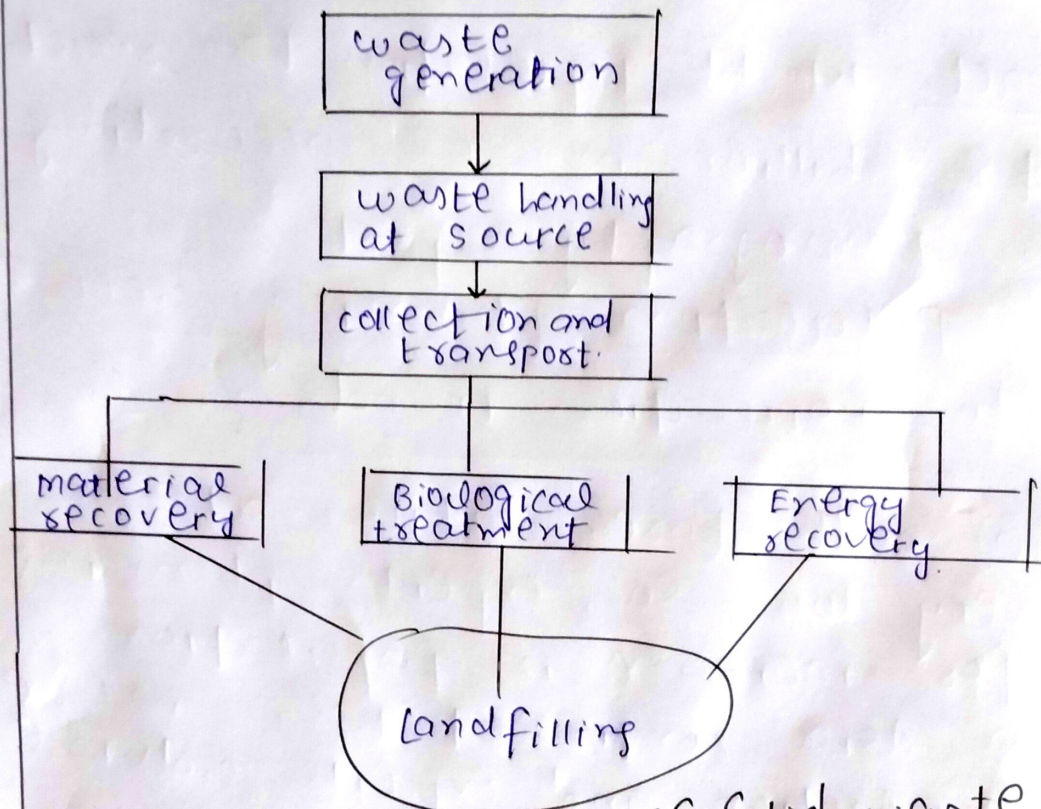 waste
generation
waste handling
at source
collection and
transport.
material
recovery
Biological
treatment
Energy
recovery.
Landfilling
waste